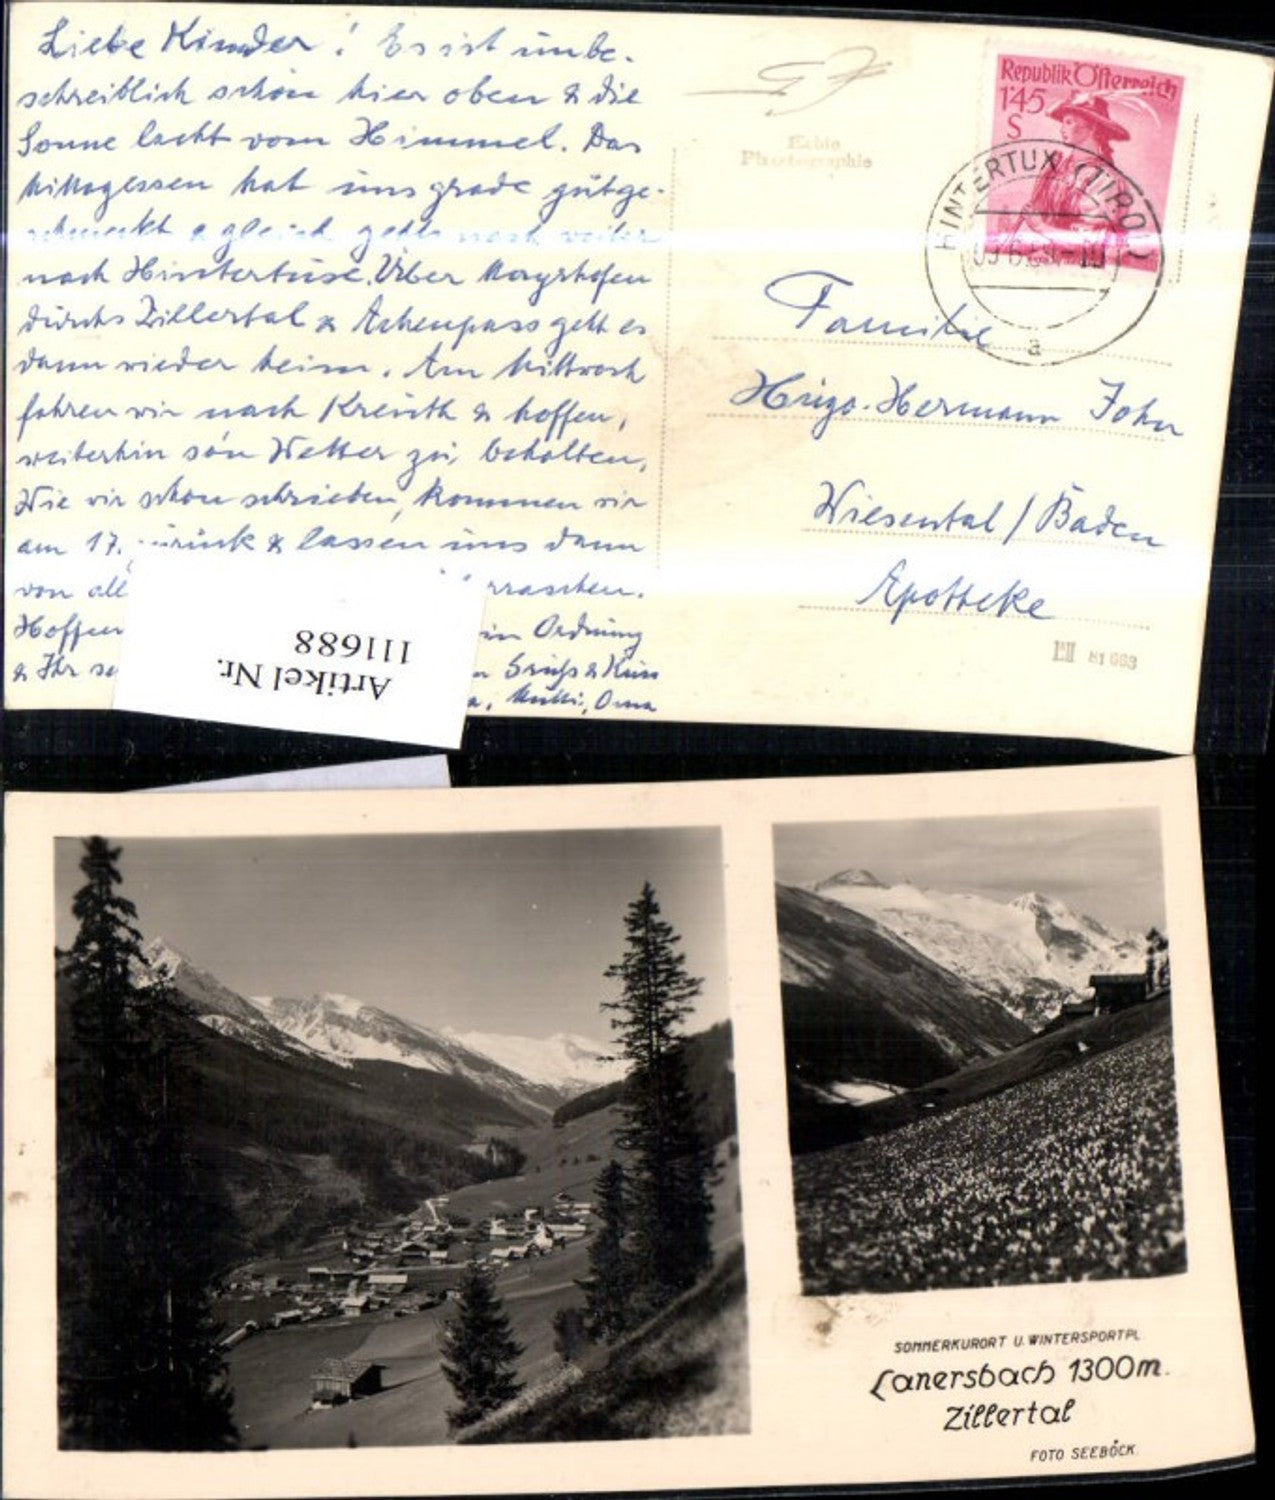 Liebe Kinder! Es ist unbe-
schreiblich schön hier oben & die
Sonne lacht vom Himmel. Das
Mittagessen hat uns grade gutge-
schmeckt & gleich gehts noch weiter
nach Hintertux. Über Mayrhofen
durchs Zillertal & Achenpass geht es
dann wieder heim. Am Mittwoch
fahren wir nach Kreuth & hoffen,
weiterhin so'n Wetter zu behalten.
Wie wir schon schrieben, kommen wir
am 17. zurück & lassen uns dann
von all rraschen.
Hoffen in Ordnung
& Ihr se Gruss & Kuss
Mutti, Oma
Artikel Nr.
111688
Echte
Photographie
Republik Österreich
1'45
S
HINTERTUX (TIROL)
a
Familie
Hugo-Hermann John
Wiesental / Baden
Apotheke
81 663
SOMMERKURORT U. WINTERSPORTPL.
Lanersbach 1300m.
Zillertal
FOTO SEEBÖCK.